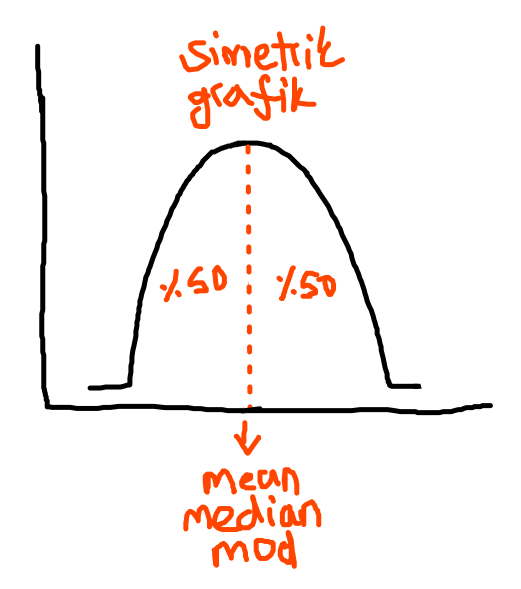 simetrik
grafik
%50 %50
mean
median
mod